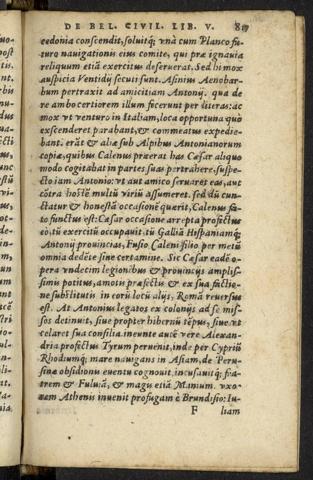 DE BEL. CIVIL. LIB. V.
cedonia conscendit, soluitq; vnà cum Planco fu-
turo nauigationis eius comite, qui præ ignauia
reliquum etiã exercitus deseruerat. Sed hi mox
auspicia Ventidij secuti sunt. Asinius Aenobar-
bum pertraxit ad amicitiam Antonij. qua de
re ambo certiorem illum fecerunt per literas: ac
mox vt venturo in Italiam, loca opportuna quò
exscenderet parabant, & commeatus expedie-
bant. erãt & aliæ sub Alpibus Antonianorum
copiæ, quibus Calenus præerat has Cæsar aliquo
modo cogitabat in partes suas pertrahere, suspe-
cto iam Antonio: vt aut amico seruaret eas, aut
cõtra hostẽ multũ viriũ assumeret. sed dũ cun-
ctatur & honestã occasionẽ quærit, Calenus fa-
to functus est: Cæsar occasione arrepta profectus
eò, tũ exercitũ occupauit, tũ Galliã Hispaniamq;
Antonij prouincias, Fusio Caleni filio per metũ
omnia dedẽte sine certamine. Sic Cæsar eadẽ o-
pera vndecim legionibus & prouincijs amplis-
simis potitus, amotis præfectis & ex sua factio-
ne substitutis in eorũ locũ alijs, Romã reuersus
est. At Antonius legatos ex colonijs ad se mis-
sos detinuit, siue propter hibernũ tẽpus, siue vt
celaret sua consilia ineunte aucẽ vere Alexan-
dria profectus Tyrum peruenit, inde per Cypriũ
Rhodumq; mare nauigans in Asiam, de Peru-
sinæ obsidionis euentu cognouit, incusauitq; fra-
trem & Fuluiã, & magis etiã Manium. vxo-
rem Athenis inuenit profugam è Brundisio: Iu-
F liam